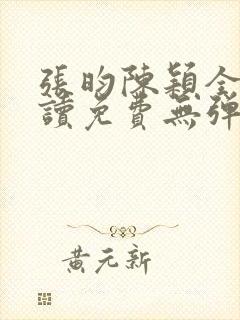 張昀陳穎全
讀免費無彈
黃元新